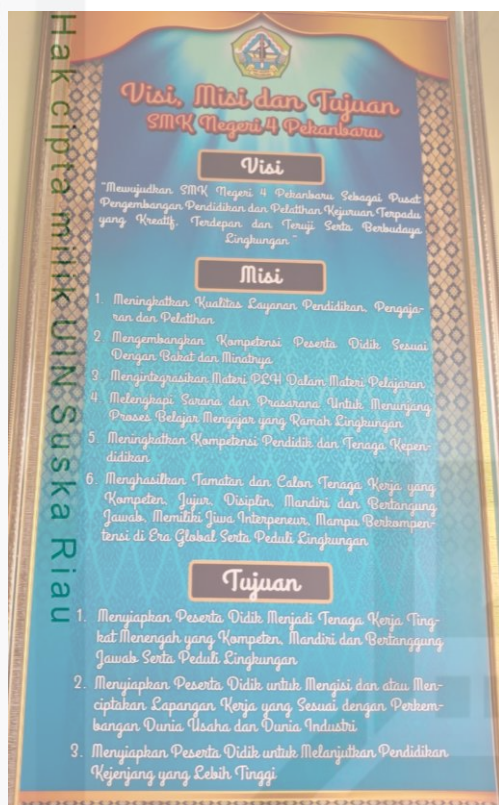 Hak cipta milik UIN Suska Riau
Visi, Misi dan Tujuan
SMK Negeri 4 Pekanbaru
Visi
"Mewujudkan SMK Negeri 4 Pekanbaru Sebagai Pusat
Pengembangan Pendidikan dan Pelatihan Kejuruan Terpadu
yang Kreatif, Terdepan dan Teruji Serta Berbudaya
Lingkungan"
Misi
1. Meningkatkan Kualitas Layanan Pendidikan, Pengaja-
ran dan Pelatihan
2. Mengembangkan Kompetensi Peserta Didik Sesuai
Dengan Bakat dan Minatnya
3. Mengintegrasikan Materi PLH Dalam Materi Pelajaran
4. Melengkapi Sarana dan Prasarana Untuk Menunjang
Proses Belajar Mengajar yang Ramah Lingkungan
5. Meningkatkan Kompetensi Pendidik dan Tenaga Kepen-
didikan
6. Menghasilkan Tamatan dan Calon Tenaga Kerja yang
Kompeten, Jujur, Disiplin, Mandiri dan Bertangung
Jawab, Memiliki Jiwa Interpeneur, Mampu Berkompen-
tensi di Era Global Serta Peduli Lingkungan
Tujuan
1. Menyiapkan Peserta Didik Menjadi Tenaga Kerja Ting-
kat Menengah yang Kompeten, Mandiri dan Bertanggung
Jawab Serta Peduli Lingkungan
2. Menyiapkan Peserta Didik untuk Mengisi dan atau Men-
ciptakan Lapangan Kerja yang Sesuai dengan Perkem-
bangan Dunia Usaha dan Dunia Industri
3. Menyiapkan Peserta Didik untuk Melanjutkan Pendidikan
Kejenjang yang Lebih Tinggi